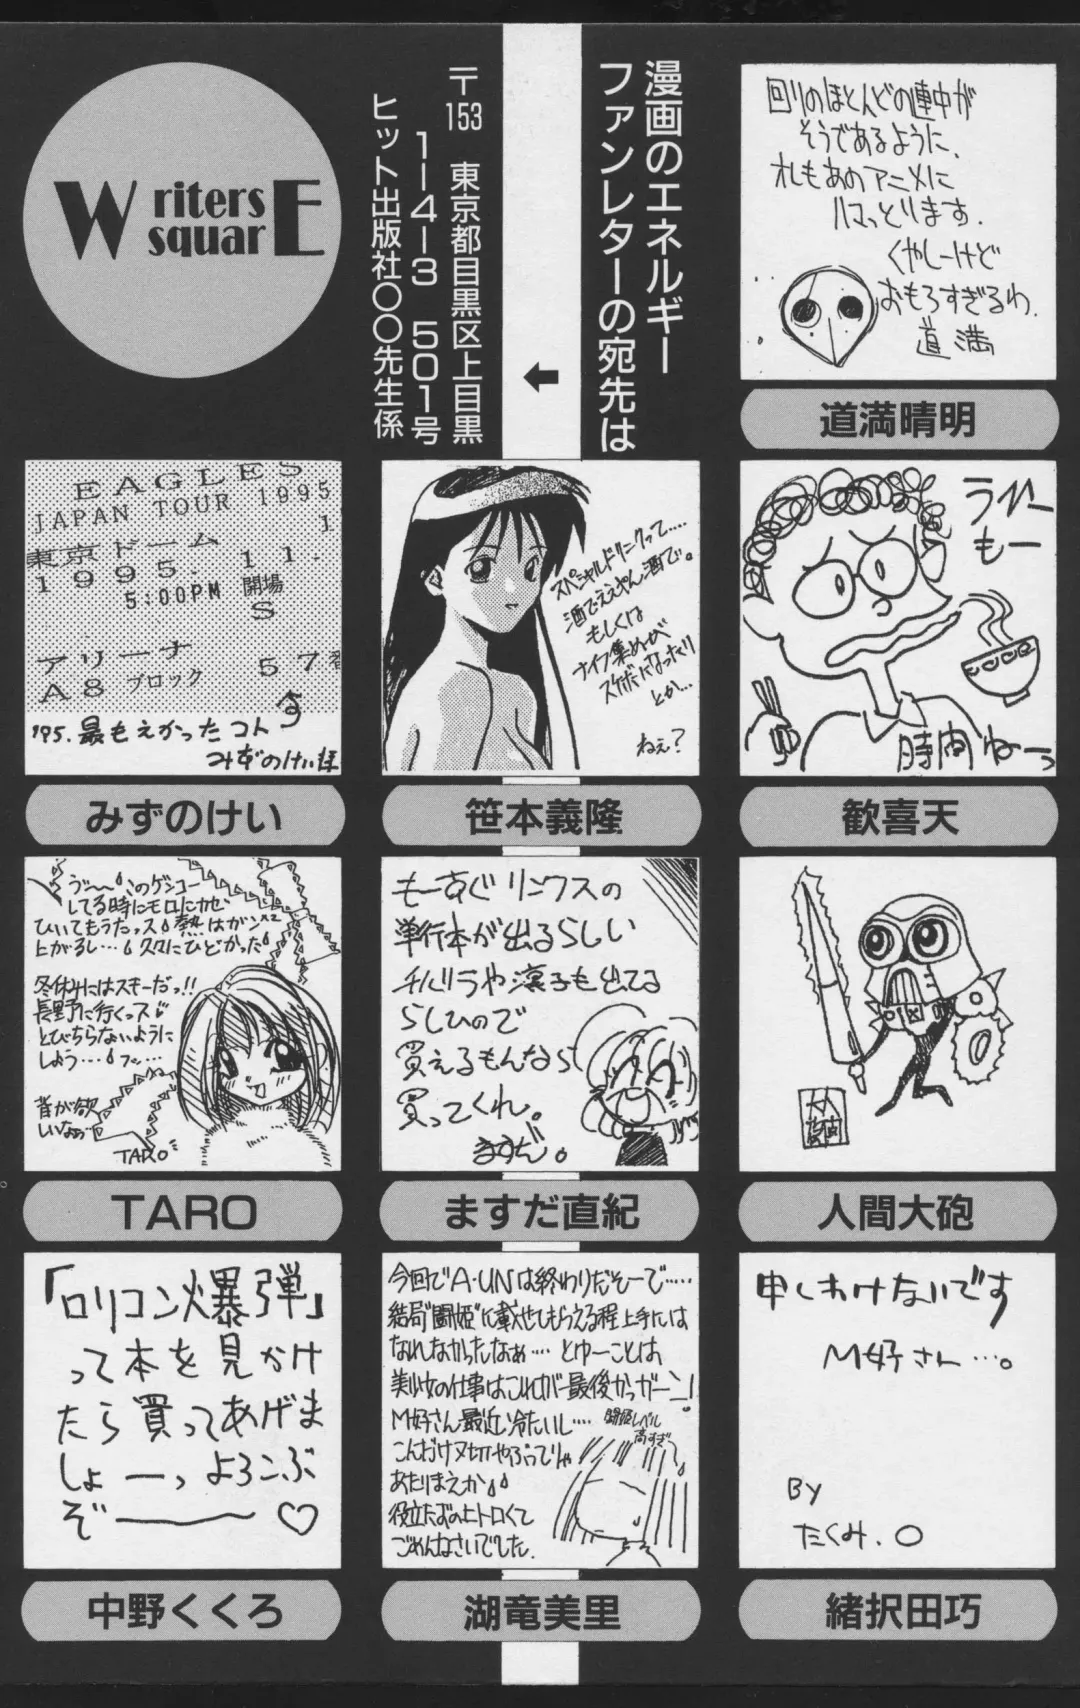 Writers
squarE
漫画のエネルギー
ファンレターの宛先は
〒153 東京都目黒区上目黒
1-4-3 501号
ヒット出版社〇〇先生係
回りのほとんどの連中が
そうであるように、
オレもあのアニメに
ハマっとります.
くやしーけど
おもろすぎるわ.
道満
道満晴明
うへー
もー
時間ねーっ
歓喜天
スペシャルドリンクって……
酒でええやん酒で。
もしくは
ナイフ集めが
スケボーになったり
とか…
ねぇ?
笹本義隆
EAGLES
JAPAN TOUR 1995
東京ドーム 1
1995. 11.
5:00PM 開場
S
アリーナ 57番
A8 ブロック
'95. 最もえかったコト
みずのけい
みずのけい
人間大砲
人間大砲
もーすぐリンクスの
単行本が出るらしい
チバリラや凛子も出てる
らしひので
買えるもんなら
買ってくれ。
ますだ。
ますだ直紀
う゛〜〜このゲンコー
してる時にモロにカゼ
ひいてもうたっス 熱はガンx2
上がるし… 久々にひどかった
冬休みにはスキーだっ!!
長野に行くっス
とびちらないように
しよう…
背が欲
しいなっ
TARO
TARO
申しわけないです
M好さん…。
By
たくみ.〇
緒択田巧
今回でA・UNは終わりだそーで……
結局“闘姫”に載せてもらえる程上手には
なれなかったなぁ…. とゆーことは
美少女の仕事はこれが最後かっガーン!
M好さん最近冷たいし…
こんだけ〆切やぶってでりゃ
あたりまえか
役立たずの上トロくて
ごめんなさいでした.
闘姫レベル
高すぎ
湖竜美里
「ロリコン爆弾」
って本を見かけ
たら買ってあげま
しょーっ よろこぶ
ぞ――〜 ♡
中野くくろ